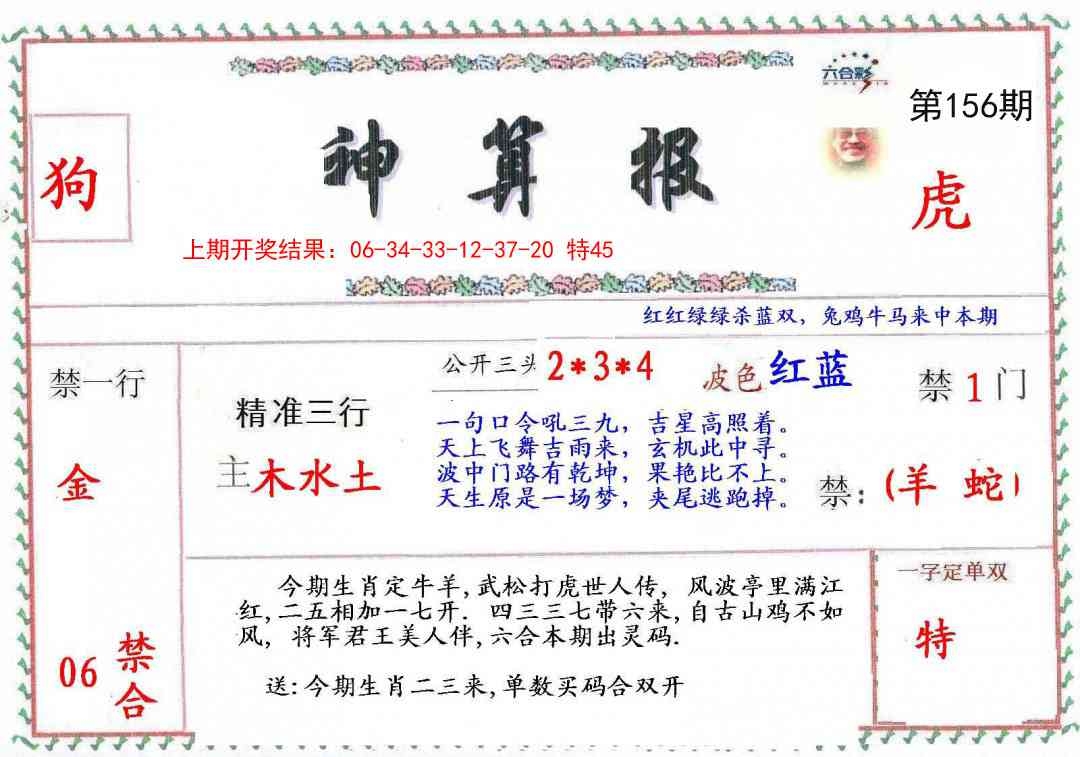 六合彩
第156期
狗
神算报
虎
上期开奖结果：06-34-33-12-37-20 特45
红红绿绿杀蓝双，兔鸡牛马来中本期
禁一行
金
06
禁合
精准三行
主木水土
公开三头 2*3*4
波色 红蓝
一句口令吼三九，吉星高照着。
天上飞舞吉雨来，玄机此中寻。
波中门路有乾坤，果艳比不上。
天生原是一场梦，夹尾逃跑掉。
禁1门
禁：(羊 蛇)
今期生肖定牛羊,武松打虎世人传，风波亭里满江
红,二五相加一七开．四三三七带六来,自古山鸡不如
风，将军君王美人伴,六合本期出灵码.
送:今期生肖二三来,单数买码合双开
一字定单双
特